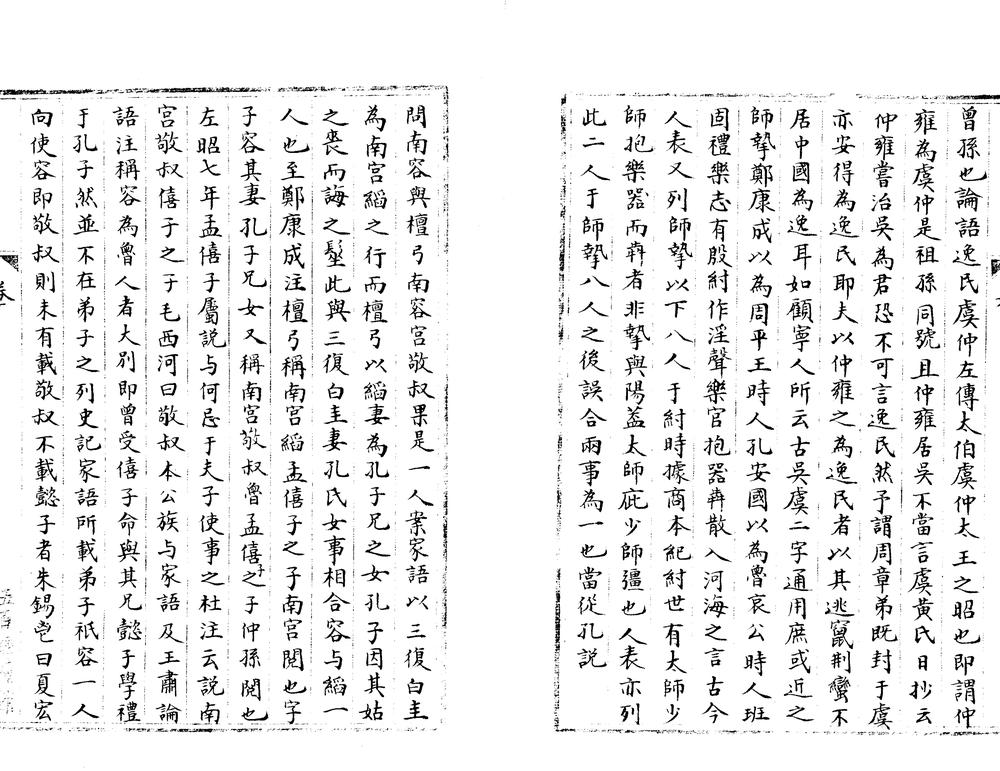 曾孫也論語逸民虞仲左傳太伯虞仲太王之昭也即謂仲
雍為虞仲是祖孫同號且仲雍居吳不當言虞黃氏日抄云
仲雍嘗治吳為君恐不可言逸民然予謂周章弟既封于虞
亦安得為逸民耶夫以仲雍之為逸民者以其逃竄荆蠻不
居中國為逸耳如顧寧人所云古吳虞二字通用庶或近之
師摯鄭康成以為周平王時人孔安國以為魯哀公時人班
固禮樂志有殷紂作淫聲樂官抱器犇散入河海之言古今
人表又列師摯以下八人于紂時據商本紀紂世有太師少
師抱樂器而犇者非摯與陽蓋太師庇少師彊也人表亦列
此二人于師摯八人之後誤合兩事為一也當從孔說
問南容與檀弓南容宮敬叔果是一人案家語以三復白圭
為南宮縚之行而檀弓以縚妻為孔子兄之女孔子因其姑
之喪而誨之髽此與三復白圭妻孔氏女事相合容与縚一
人也至鄭康成注檀弓稱南宮縚孟僖子之子南宮閱也字
子容其妻孔子兄女又稱南宮敬叔魯孟僖子之子仲孫閱也
左昭七年孟僖子屬說与何忌于夫子使事之杜注云說南
宮敬叔僖子之子毛西河曰敬叔本公族与家語及王肅論
語注稱容為魯人者大別即曾受僖子命與其兄懿子學禮
于孔子然並不在弟子之列史記家語所載弟子祇容一人
向使容即敬叔則未有載敬叔不載懿子者朱錫鬯曰夏宏